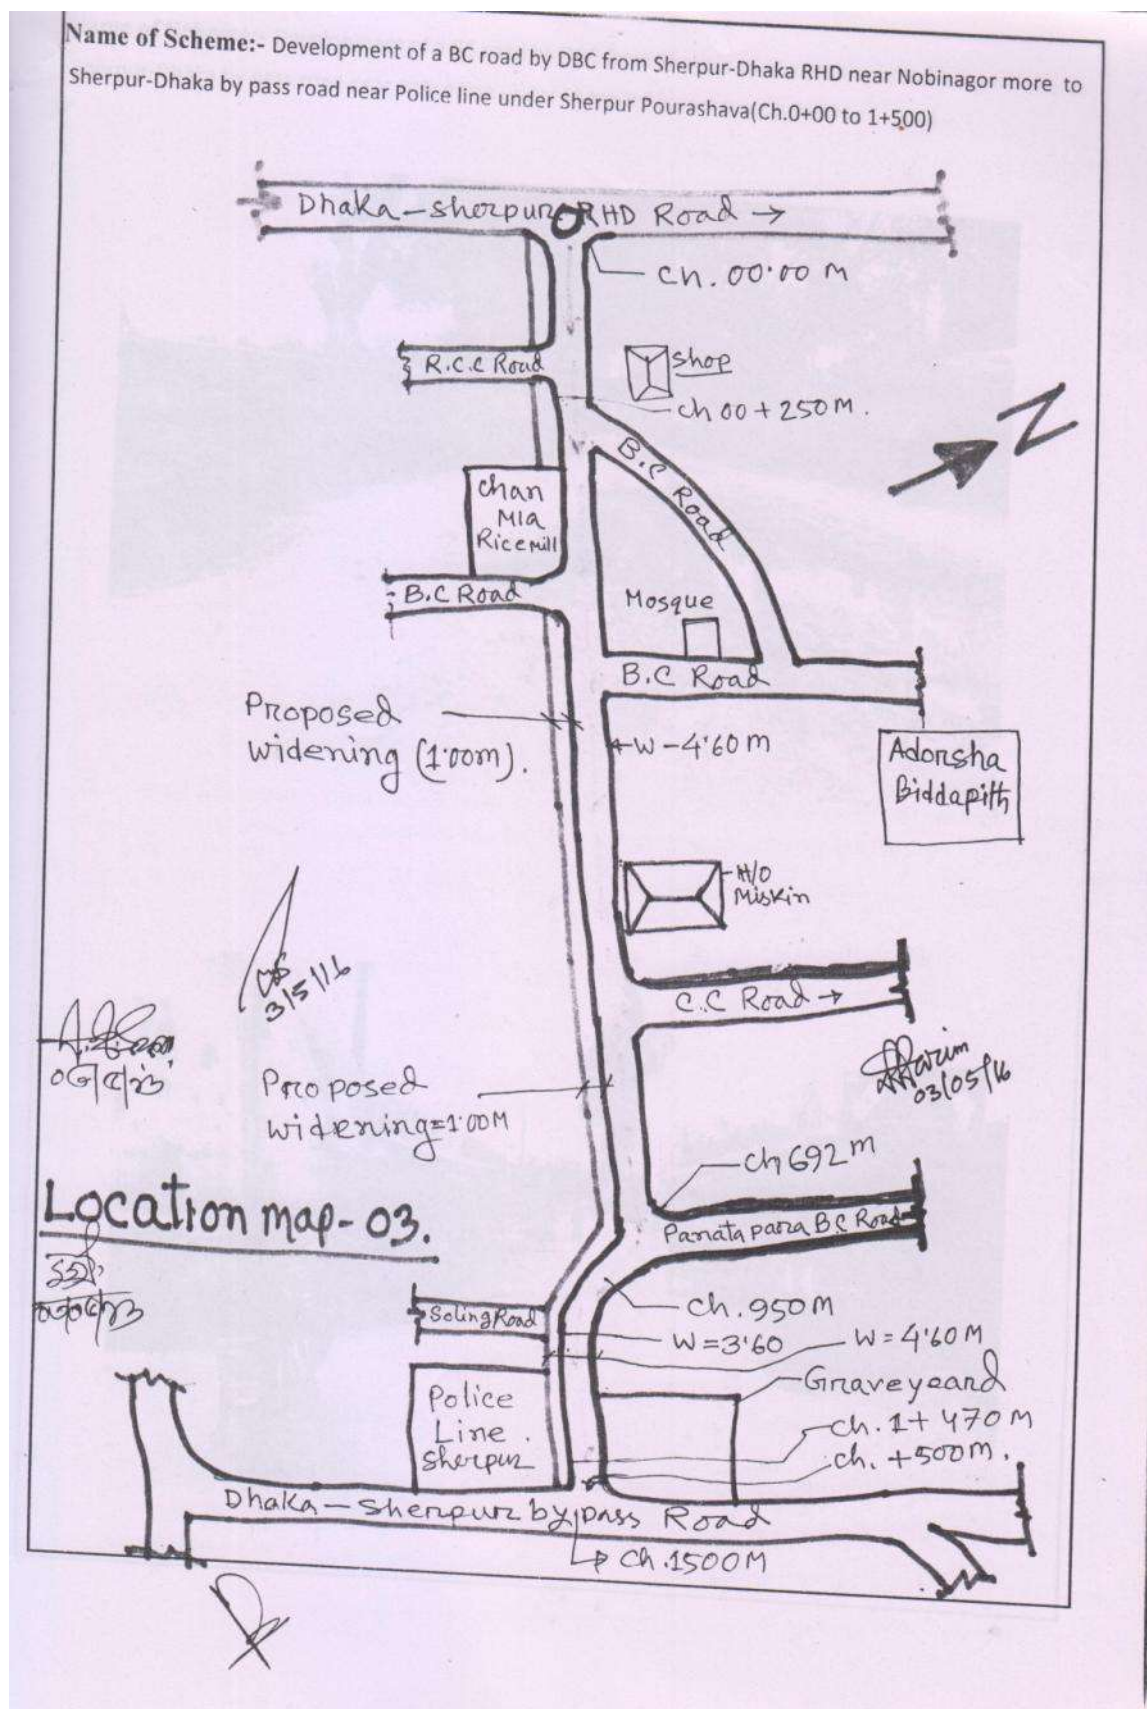 Name of Scheme:- Development of a BC road by DBC from Sherpur-Dhaka RHD near Nobinagor more to
Sherpur-Dhaka by pass road near Police line under Sherpur Pourashava(Ch.0+00 to 1+500)
Dhaka-Sherpur RHD Road →
Ch. 00·00 M
R.C.C Road
Shop
Ch 00 + 250 M.
B.C Road
N
Chan
Mia
Rice mill
B.C Road
Mosque
B.C Road
Proposed
widening (1·00m).
W-4·60 m
Adorsha
Biddapith
H/O
Miskin
C.C Road →
3/5/16
03/05/16
Proposed
widening=1·00M
Ch 692 m
Location map-03.
Panatapara B.C Road
Ch. 950 M
Soling Road
W=3·60
W=4·60 M
Graveyeard
Police
Line.
Sherpur
Ch. 1+470 M
Ch. +500 M.
Dhaka-Sherpur by pass Road
Ch. 1500M